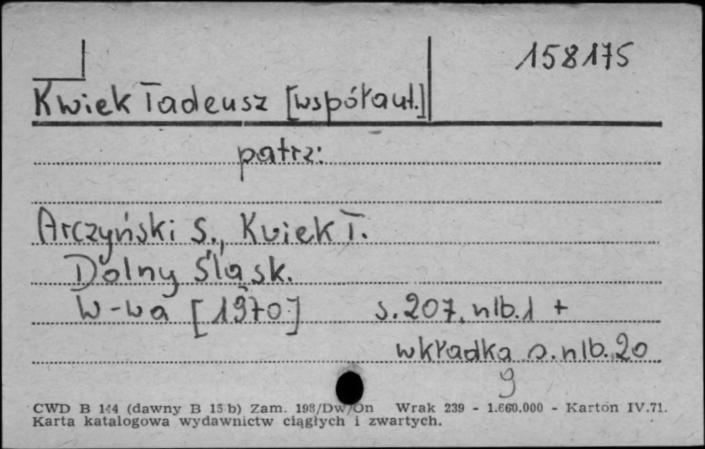 158175
Kwiek Tadeusz [współaut.]
patrz:
Arczyński S., Kwiek T.
Dolny Śląsk.
W-wa [1970] s. 207, nlb. 1 +
wkładka s. nlb. 20
9
CWD B 144 (dawny B 15 b) Zam. 198/Dw/On Wrak 239 - 1.660.000 - Karton IV.71.
Karta katalogowa wydawnictw ciągłych i zwartych.